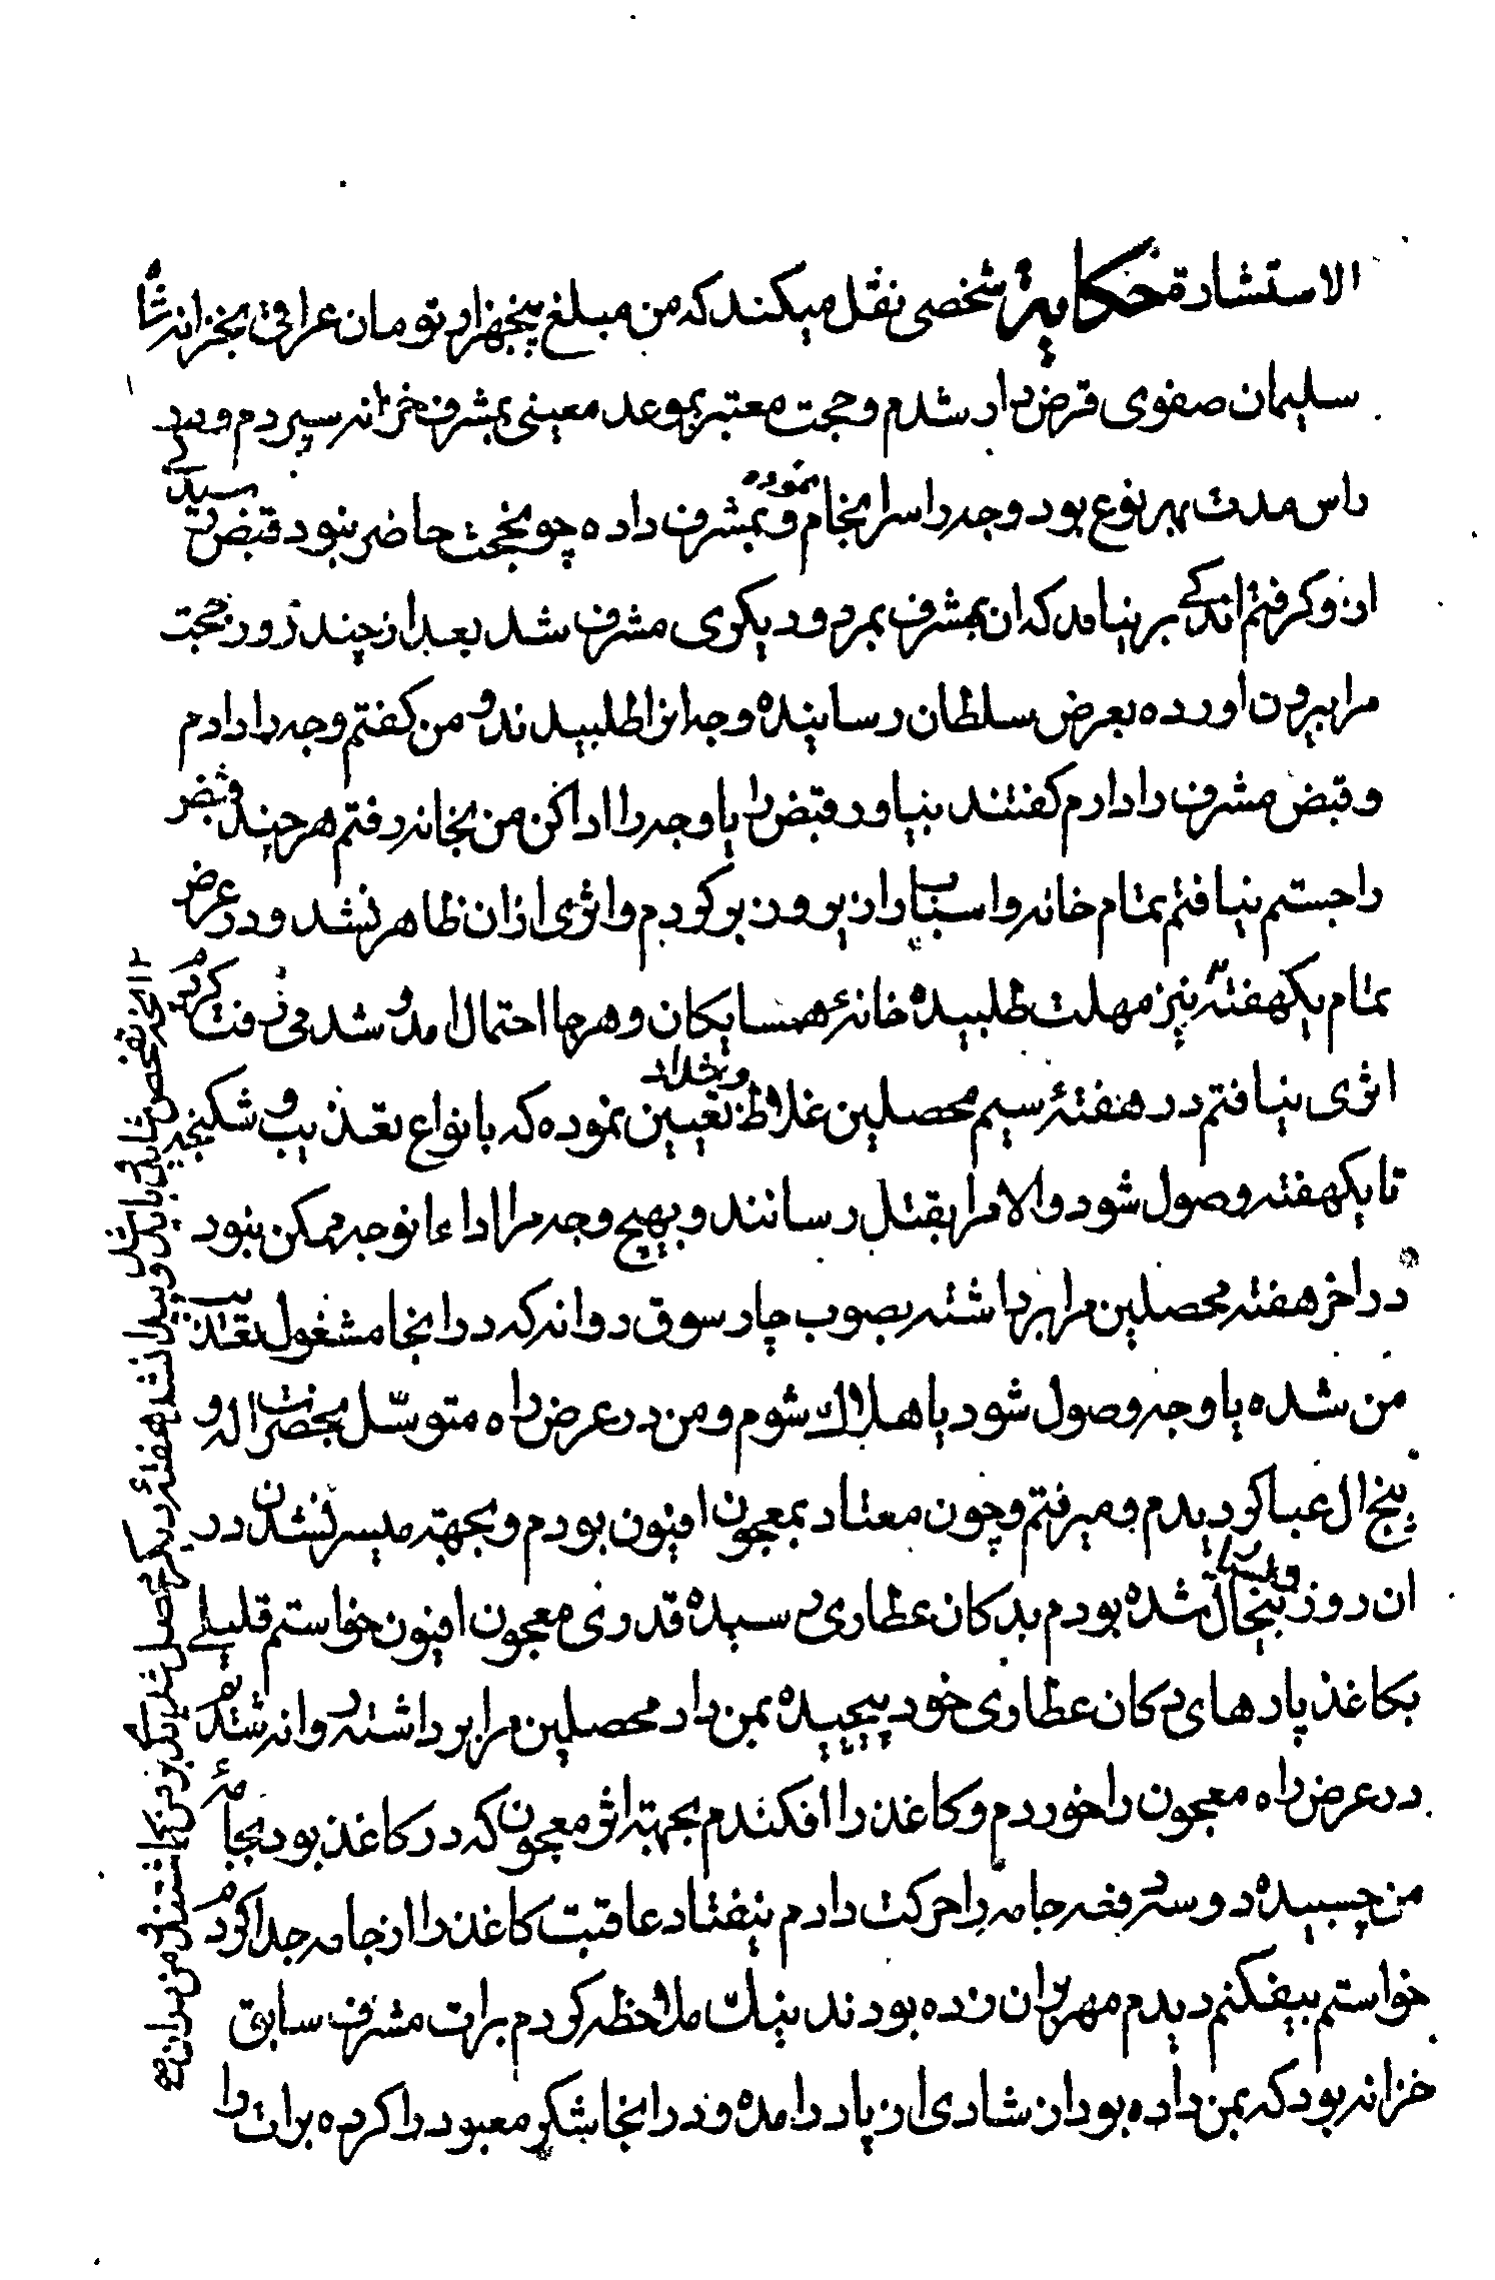 الاستشارة حکایة شخصی نقل میکند که من مبلغ پنجهزار تومان عراقی بخزانه شاه
سلیمان صفوی قرض دار شدم و حجت معتبر بموعد معینی بمشرف خزانه سپردم و در
راس مدت بهر نوع بود وجه را سرانجام نموده و بمشرف داده چو نحجت حاضر نبود قبض رسیدگی
از و کرفتم اندکی بر نیامد که ان مشرف بمرد و دیکری مشرف شد بعد از چند روز حجت
مرا بیرون اورده بعرض سلطان رسانیده وجه انرا طلبیدند و من کفتم وجه را دادم
و قبض مشرف را دارم کفتند بنیاور قبض را یا وجه را ادا کن من بخانه رفتم هر چند قبض
را جستم نیافتم تمام خانه و اسباب را زیر و زبر کردم و اثری ازان ظاهر نشد و در عرض
تمام یکهفته نیز مهلت طلبیده خانهٔ همسایکان و هر جا احتمال امد و شد می رفت کردیدم
اثری نیافتم در هفتهٔ سیم محصلین غلاظ و شداد تعیین نموده که بانواع تعذیب و شکنجه
تا یکهفته وصول شود والا مرا بقتل رسانند و بهیچ وجه مرا اداء انوجه ممکن نبود
در اخر هفته محصلین مرا برداشته بصوب چار سوق روانه که در انجا مشغول تعذیب
من شده یا وجه وصول شود یا هلاك شوم و من در عرض راه متوسّل بحضرت اله و
پنج ال عبا کردیدم و میرفتم و چون معتاد بمعجون افیون بودم و بجهته میسر نشدن در
ان روز بیحال شده بودم بدکان عطاری رسیده قدری معجون افیون خواستم قلیلی
بکاغذ پارهای دکان عطاری خود پیچیده بمن داد محصلین مرا برداشته روانه شدند
در عرض راه معجون را خوردم و کاغذ را افکندم بجهته اثر معجون که در کاغذ بود بجامهٔ
من چسبیده دو سه دفعه جامه را حرکت دادم نیفتاد عاقبت کاغذ را از جامه جدا کردم
خواستم بیفکنم دیدم مهر بران زده بودند نیك ملاحظه کردم برات مشرف سابق
خزانه بود که بمن داده بود از شادی از پا در امده و در انجا شکر معبود را کرده برات را